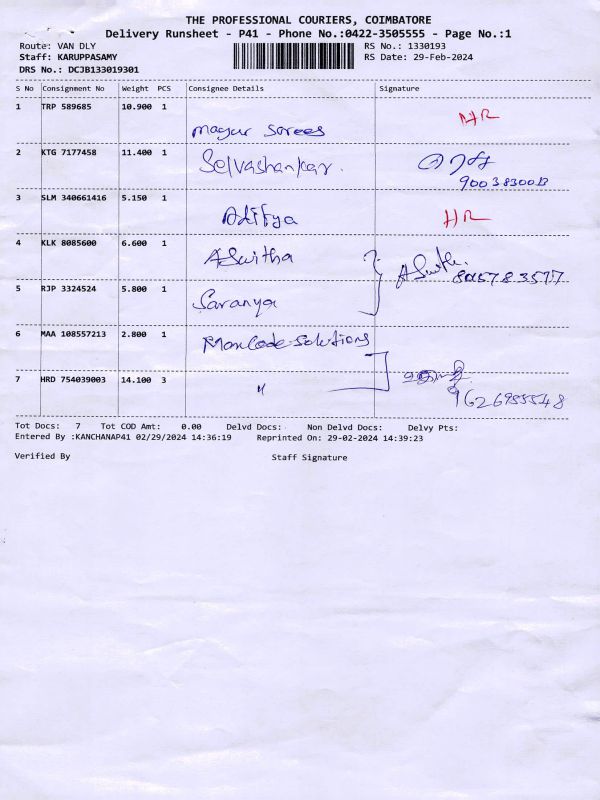 THE PROFESSIONAL COURIERS, COIMBATORE
Delivery Runsheet - P41 - Phone No.:0422-3505555 - Page No.:1
Route: VAN DLY RS No.: 1330193
Staff: KARUPPASAMY RS Date: 29-Feb-2024
DRS No.: DCJB133019301
S No Consignment No Weight PCS Consignee Details Signature
1 TRP 589685 10.900 1
Mayur Sarees HR
2 KTG 7177458 11.400 1
Selvashankar.
3 SLM 340661416 5.150 1
Aditya HR
4 KLK 8085600 6.600 1
ASwitha
5 RJP 3324524 5.800 1
Saranya
6 MAA 108557213 2.800 1
ManCode Solutions
7 HRD 754039003 14.100 3
"
Tot Docs: 7 Tot COD Amt: 0.00 Delvd Docs: Non Delvd Docs: Delvy Pts:
Entered By :KANCHANAP41 02/29/2024 14:36:19 Reprinted On: 29-02-2024 14:39:23
Verified By Staff Signature